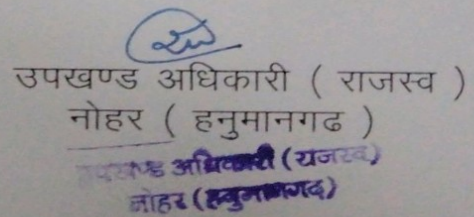 उपखण्ड अधिकारी ( राजस्व )
नोहर ( हनुमानगढ )
उपखण्ड अधिकारी (राजस्व)
नोहर (हनुमानगढ)